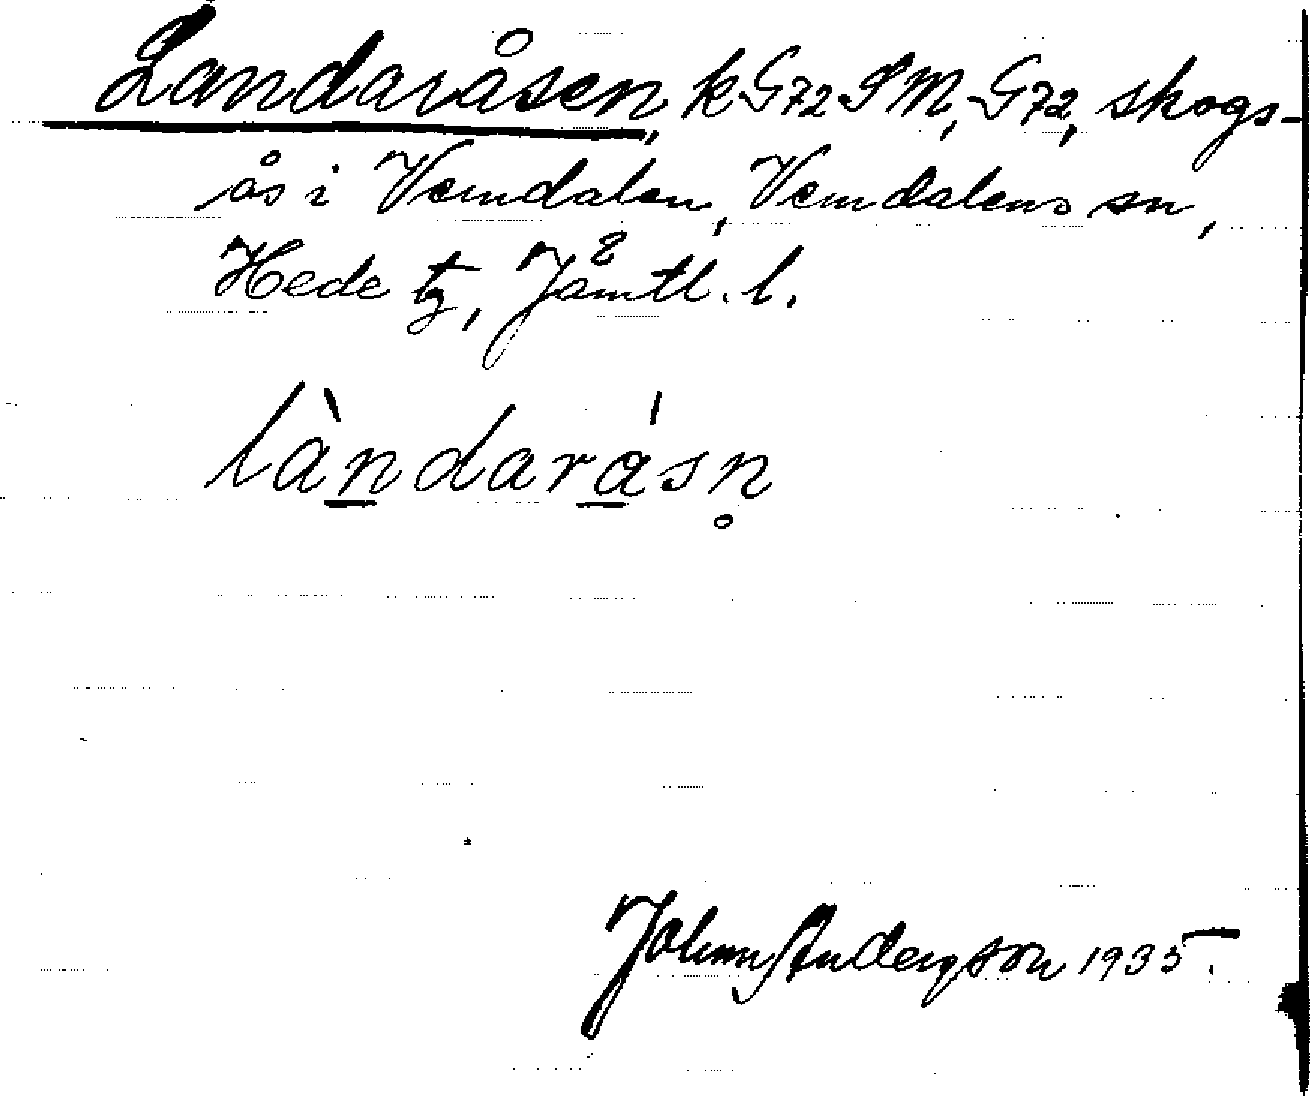 Landaråsen, k G72 SM, G72, skogs-
ås i Vemdalen, Vemdalens sn,
Hede tg, Jämtl. l.
làndarásn̥
John Andersson 1935.